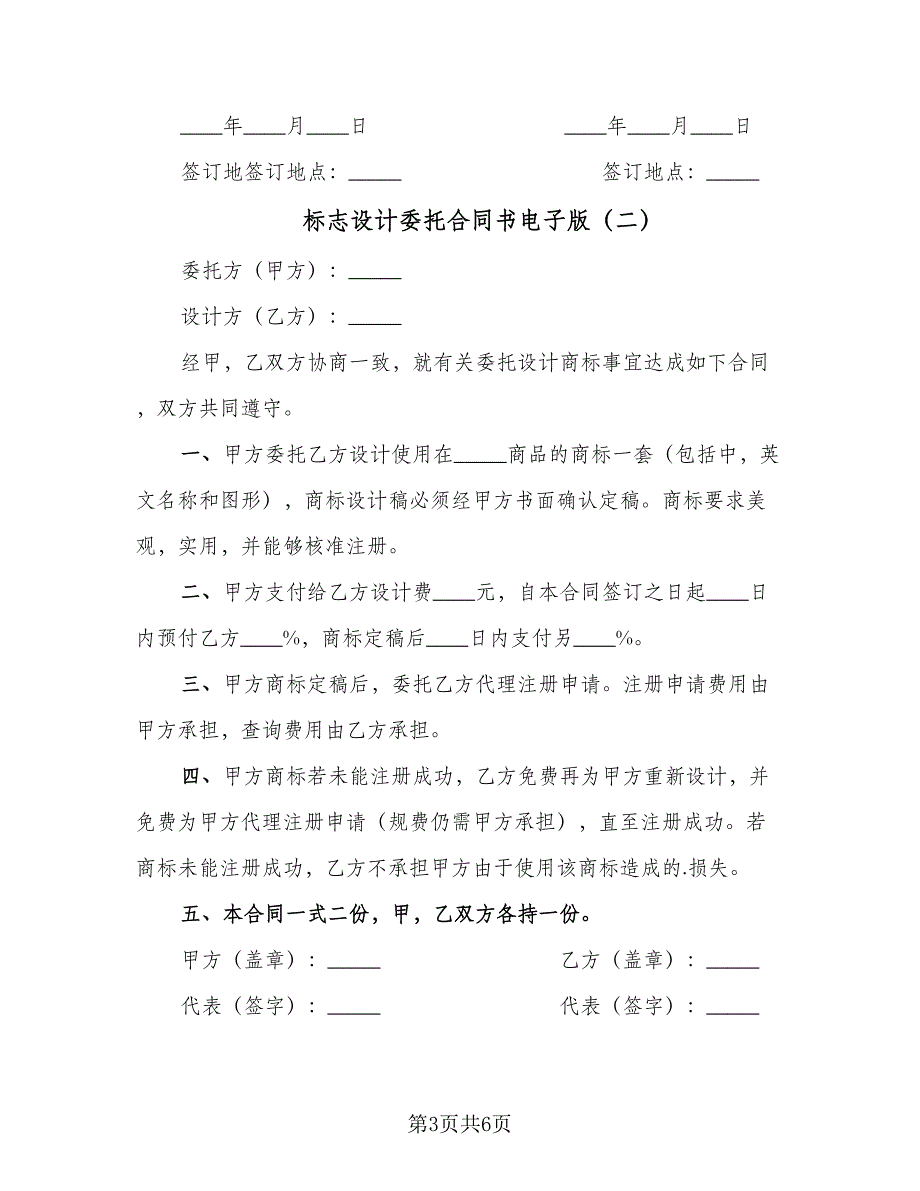 ____年____月____日 ____年____月____日
签订地签订地点：_____ 签订地点：_____
标志设计委托合同书电子版（二）
委托方（甲方）：_____
设计方（乙方）：_____
经甲，乙双方协商一致，就有关委托设计商标事宜达成如下合同
，双方共同遵守。
一、甲方委托乙方设计使用在_____商品的商标一套（包括中，英
文名称和图形），商标设计稿必须经甲方书面确认定稿。商标要求美
观，实用，并能够核准注册。
二、甲方支付给乙方设计费____元，自本合同签订之日起____日
内预付乙方____%，商标定稿后____日内支付另____%。
三、甲方商标定稿后，委托乙方代理注册申请。注册申请费用由
甲方承担，查询费用由乙方承担。
四、甲方商标若未能注册成功，乙方免费再为甲方重新设计，并
免费为甲方代理注册申请（规费仍需甲方承担），直至注册成功。若
商标未能注册成功，乙方不承担甲方由于使用该商标造成的.损失。
五、本合同一式二份，甲，乙双方各持一份。
甲方（盖章）：_____ 乙方（盖章）：_____
代表（签字）：_____ 代表（签字）：_____
第3页共6页